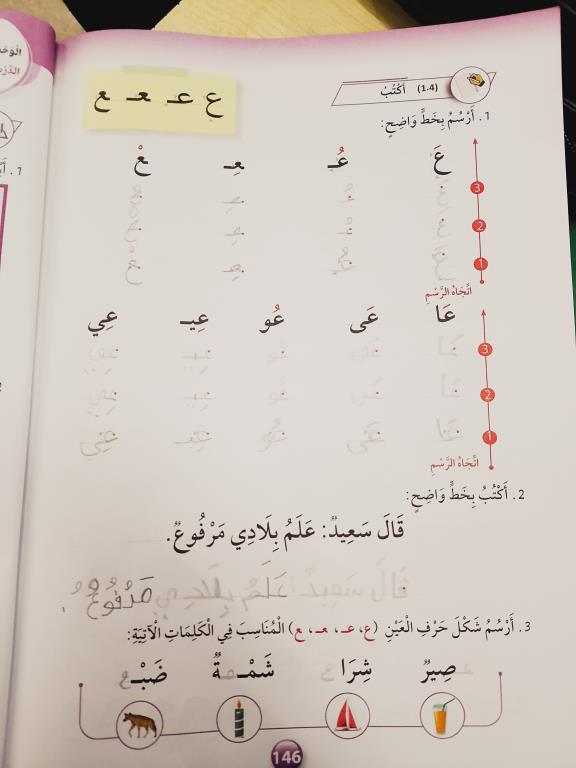 (1.4) أَكْتُبُ
ع عـ ـعـ ـع
1. أَرْسُمُ بِخَطٍّ وَاضِحٍ:
عَ عُـ عِـ عْ
3
2
1
اتِّجَاهُ الرَّسْمِ
عَا عَى عُو عِيـ عِي
3
2
1
اتِّجَاهُ الرَّسْمِ
2. أَكْتُبُ بِخَطٍّ وَاضِحٍ:
قَالَ سَعِيدٌ: عَلَمُ بِلَادِي مَرْفُوعٌ.
قَالَ سَعِيدٌ: عَلَمُ بِلَادِي مَرْفُوعٌ.
3. أَرْسُمُ شَكْلَ حَرْفِ الْعَيْنِ (ع، عـ، ـعـ، ـع) الْمُنَاسِبَ فِي الْكَلِمَاتِ الْآتِيَةِ:
عـصِيرٌ شِرَاع شَمْـعـةٌ ضَبْـع
146